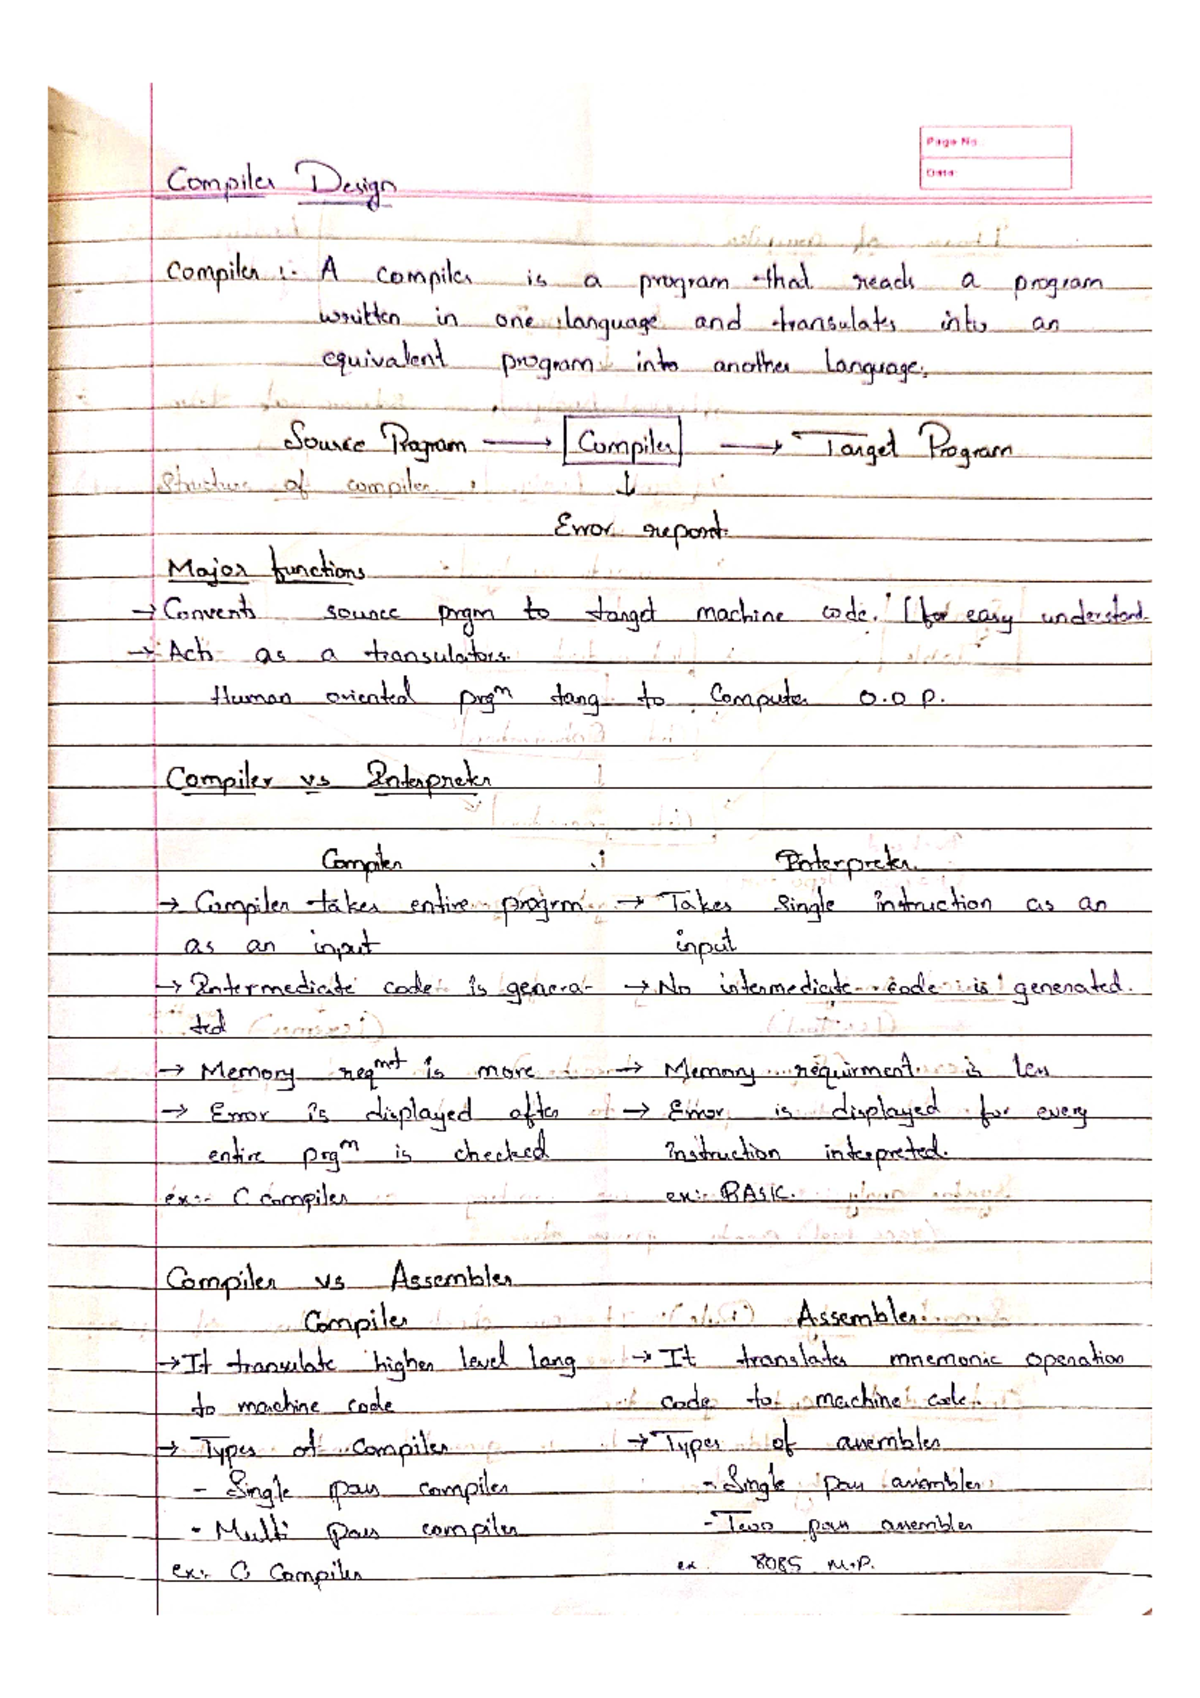 Page No.
Date:
Compiler Design
Compiler :- A compiler is a program that reads a program
written in one language and transulats into an
equivalent program into another language.
Source Program → Compiler → Target Program
Structure of compiler :
↓
Error report
Major functions
→ Converts source prgm to target machine code. [for easy understand.
→ Acts as a transulators.
Human oriented prgm lang to Computer O.O.P.
Compiler vs Interpreter
Compiler Interpreter
→ Compiler takes entire progrm → Takes Single instruction as an
as an input input
→ Intermediate code is genera- → No intermediate code is generated.
ted
→ Memory reqmnt is more → Memory requirment is less
→ Error is displayed after → Error is displayed for every
entire prgm is checked Instruction interpreted.
ex:- C Compiler ex:- BASIC.
Compiler vs Assembler
Compiler Assembler
→ It transulate higher level lang → It translates mnemonic operation
to machine code code to machine code.
→ Types of Compiler → Types of assembler
- Single pass compiler - Single pass assembler
- Multi pass compiler - Two pass assembler
ex:- C Compiler ex. 8085 M.P.